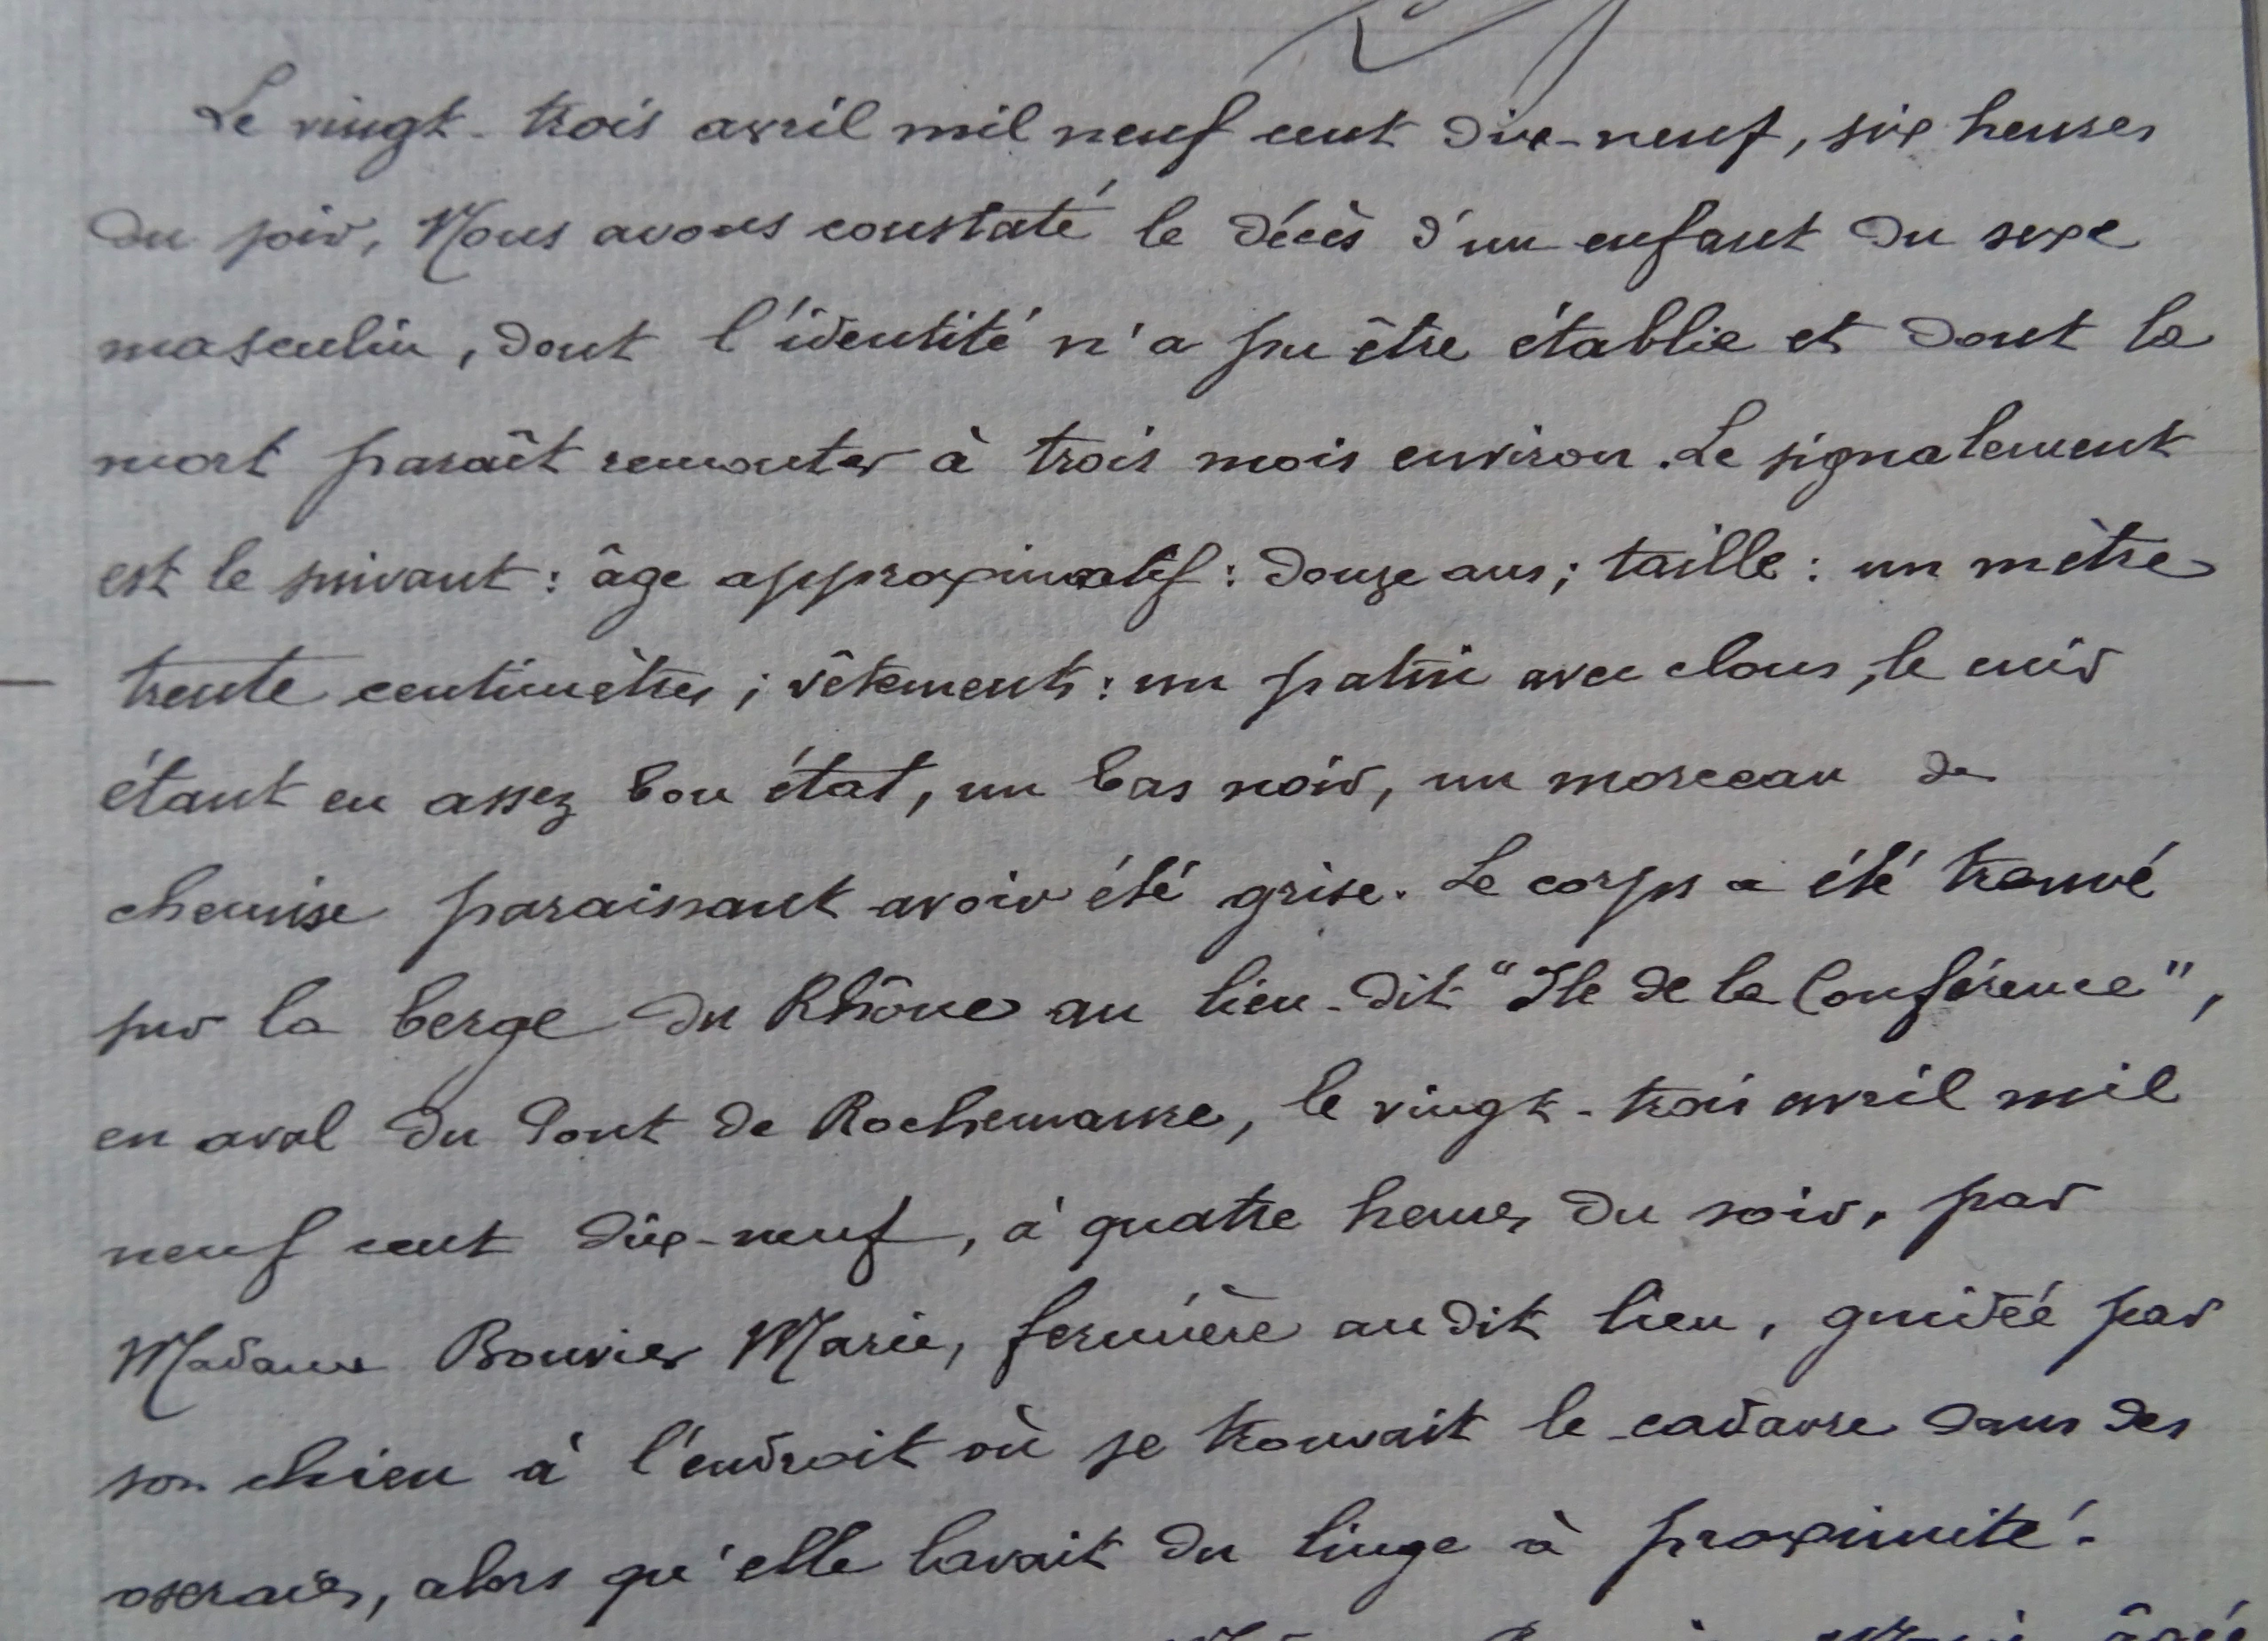 Le vingt-trois avril mil neuf cent dix-neuf, six heures
du soir, Nous avons constaté le décès d'un enfant du sexe
masculin, dont l'identité n'a pu être établie et dont la
mort paraît remonter à trois mois environ. Le signalement
est le suivant : âge approximatif : douze ans ; taille : un mètre
trente centimètres ; vêtements : un patin avec clous, le cuir
étant en assez bon état, un bas noir, un morceau de
chemise paraissant avoir été grise. Le corps a été trouvé
sur la berge du Rhône au lieu-dit "Ile de la Conférence",
en aval du Pont de Rochemaure, le vingt-trois avril mil
neuf cent dix-neuf, à quatre heures du soir, par
Madame Bouvier Marie, fermière audit lieu, guidée par
son chien à l'endroit où se trouvait le cadavre dans des
oseraies, alors qu'elle lavait du linge à proximité.